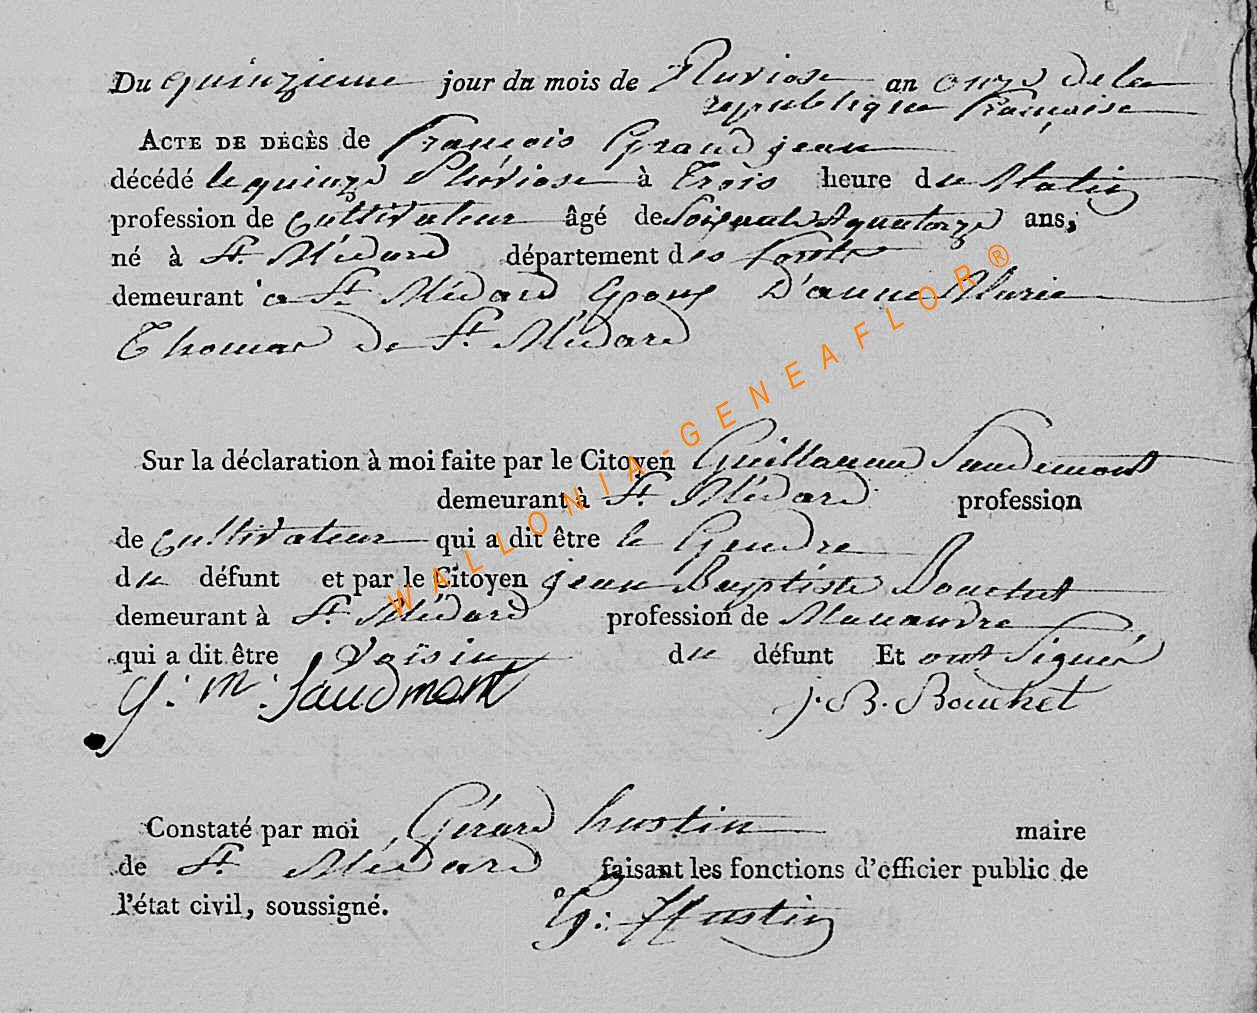 Du quinzieme jour du mois de Pluviose an onze de la
republique francoise
ACTE DE DÉCÈS de François Grandjean
décédé le quinze Pluviose à Trois heure du Matin
profession de Cultivateur âgé de Soixante & quatorze ans,
né à St. Médard département des forets
demeurant a St. Médard Epoux D'anne Marie
Thomas De St. Médard
Sur la déclaration à moi faite par le Citoyen Guillaume Saudemont
demeurant à St. Médard profession
de Cultivateur qui a dit être le Gendre
du défunt et par le Citoyen jean Baptiste Bouchet
demeurant à St. Médard profession de Manœuvre
qui a dit être Voisin du défunt Et ont Signés
g: m: Saudmont J. B. Bouchet
Constaté par moi Gérard hustin maire
de St. Médard faisant les fonctions d'officier public de
l'état civil, soussigné.
G: Hustin
WALLONIA-GENEAFLOR®